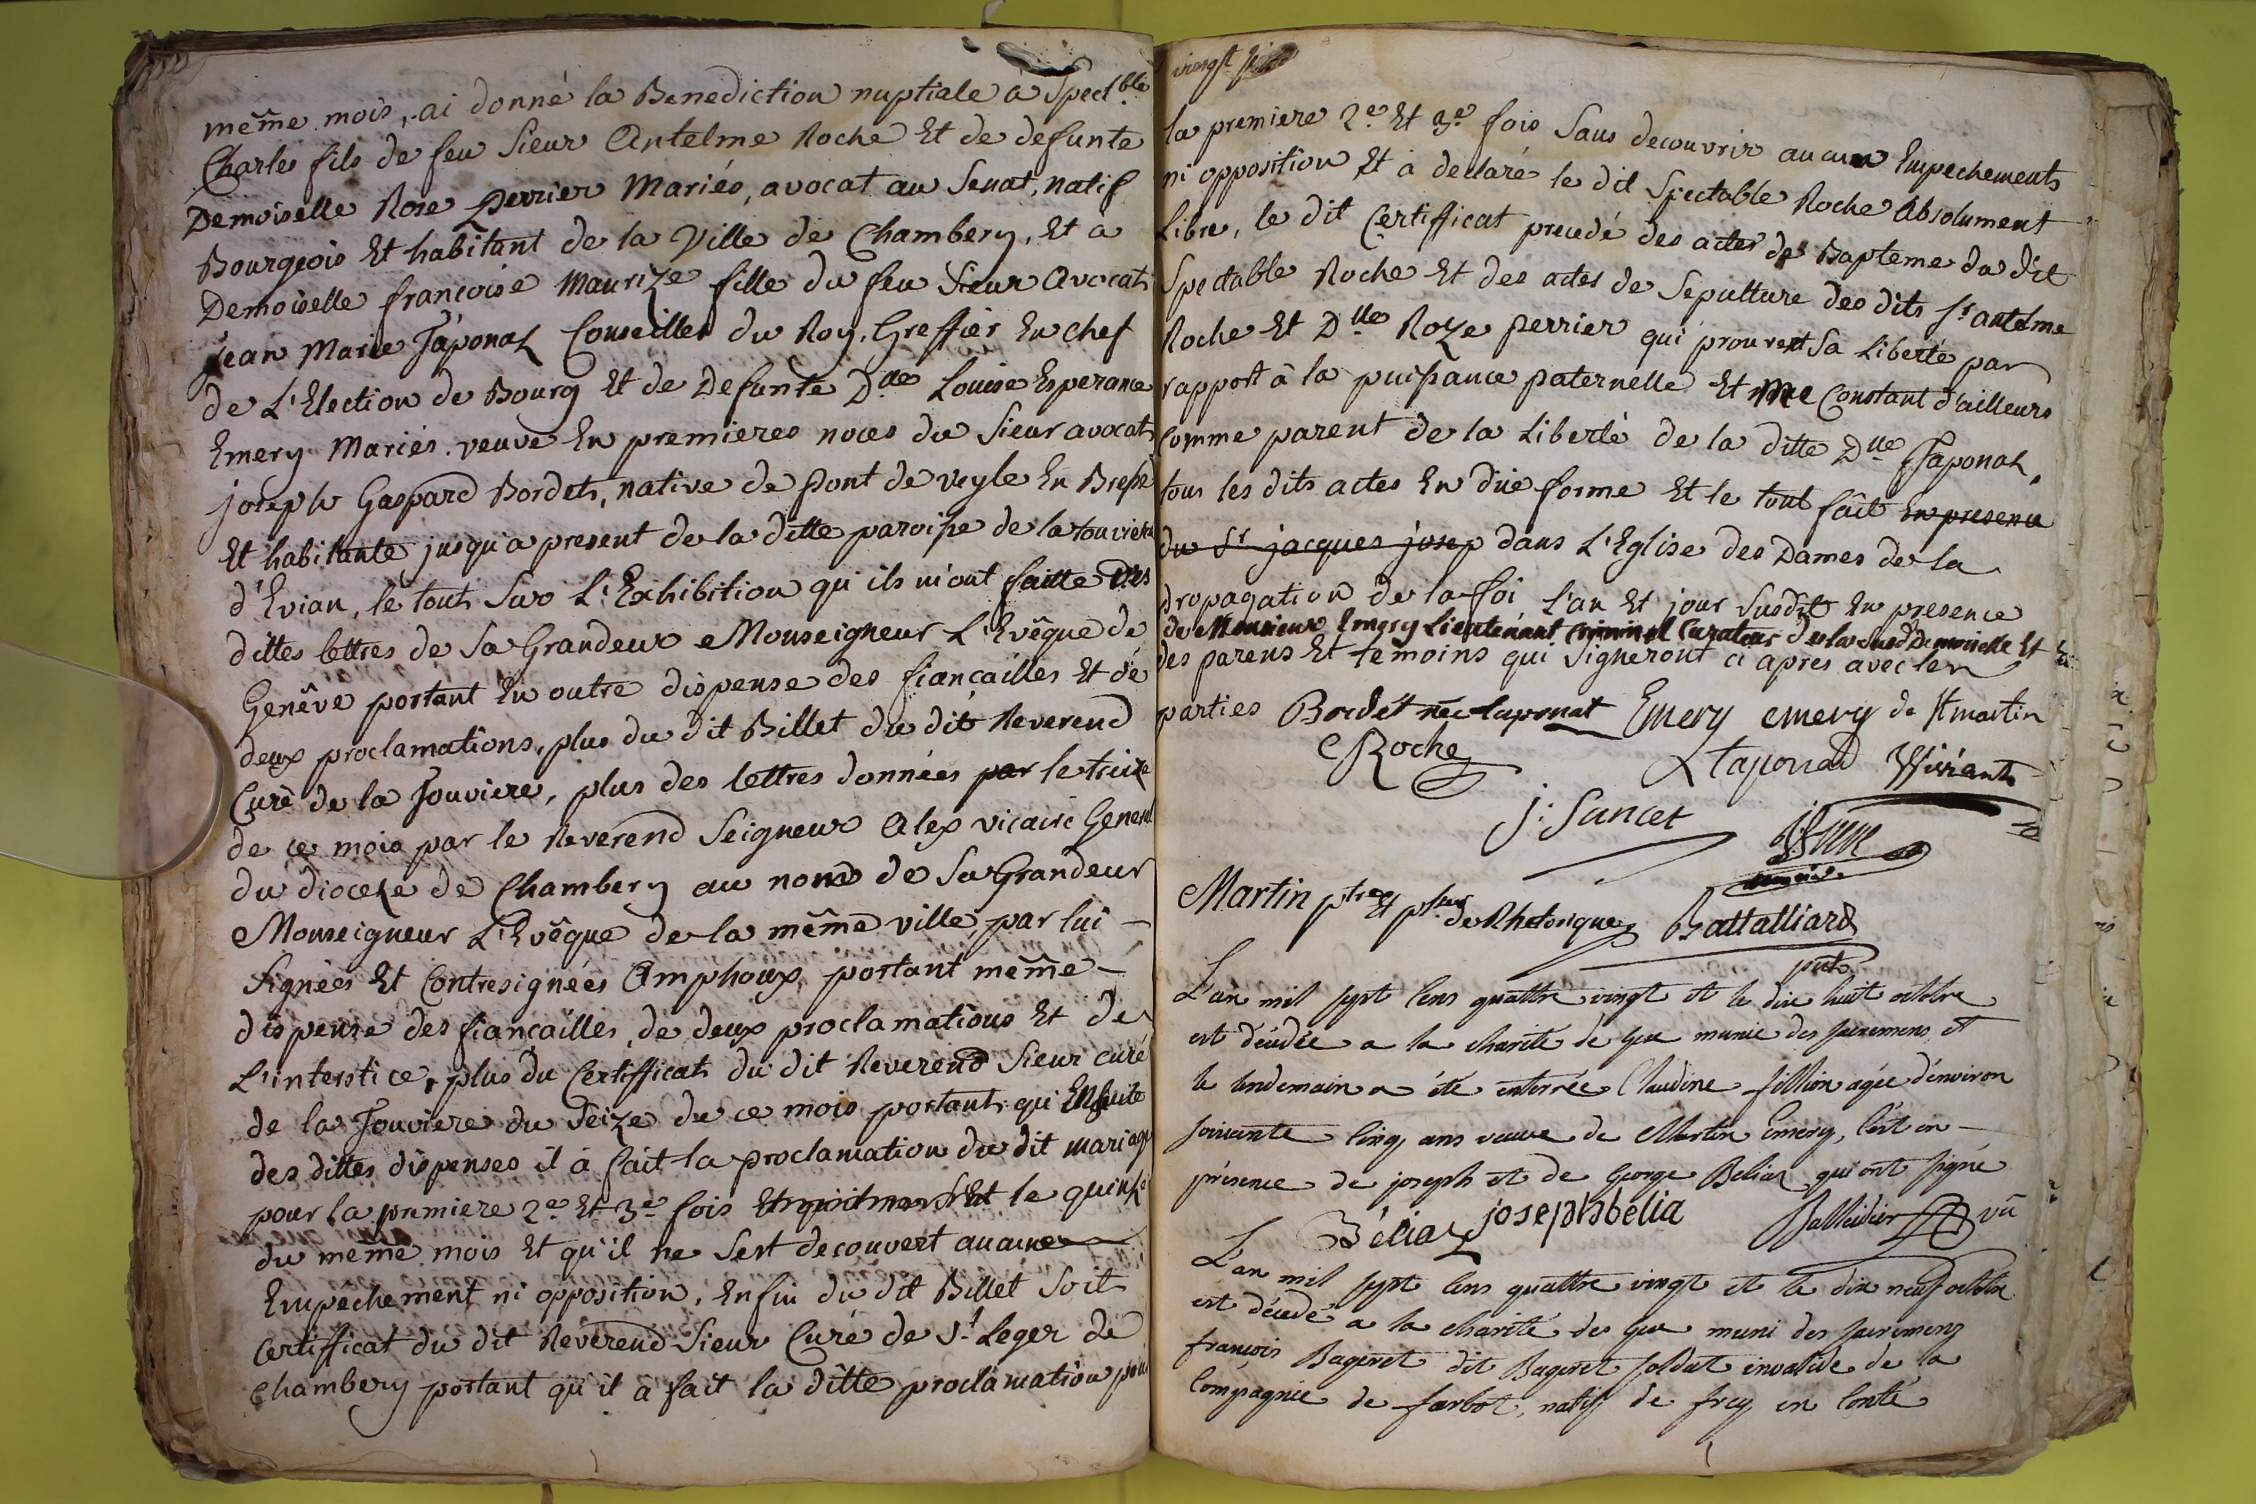 même mois, ai donné la Benediction nuptiale à Spect.ble
Charles fils de feu Sieur Antelme Roche Et de defunte
Demoiselle Rose Perrier Mariés, avocat au Senat, natif
Bourgeois Et habitant de la Ville de Chambery, Et a
Demoiselle françoise Maurize fille du feu Sieur Avocat
jean Marie Taponat Conseiller du Roy, Greffier En chef
de L'Election de Bourg Et de Defunte D.lle Louise Esperance
Emery Mariés. veuve En premieres noces du Sieur avocat
joseph Gaspard Bordet, native de Pont de veyle En Bresse
Et habitante jusqu'a present de la ditte paroisse de la touviere
d'Evian, le tout Sur L'Exhibition qu'ils m'ont faitte Des
dittes lettres de Sa Grandeur Monseigneur L'Evêque de
Genêve portant En outre dispense des fiançailles Et de
deux proclamations, plus du dit Billet du dit Reverend
Curé de la Touviere, plus des lettres données par le treize
de ce mois par le Reverend Seigneur Alex vicaire General
du dioceze de Chambery au nom de Sa Grandeur
Monseigneur L'Evêque de la même ville, par lui
Signées Et Contresignées Amphoux, portant même
dispense des fiançailles, de deux proclamations Et de
L'interstice, plus du Certifficat du dit Reverend Sieur curé
de la Touviere du Seize de ce mois portant qu'Ensuite
des dittes dispenses il à fait la proclamation du dit mariage
pour la premiere 2.e Et 3.e fois le quinze
du même mois Et qu'il ne S'est decouvert aucune
Empechement ni opposition, Enfin du dit Billet Soit
Certifficat du dit Reverend Sieur Curé de S.t Leger de
Chambery portant qu'il à fait la ditte proclamation pour
vingt
la premiere 2.e Et 3.e fois Sans decouvrir aucun Empechements
ni opposition Et à declaré le dit Spectable Roche Absolument
Libre, le dit Certifficat precedé des actes de Bapteme du dit
Spectable Roche Et des actes de Sepulture des dits S.r antelme
Roche Et D.lle Roze perrier qui prouvent Sa Liberté par
rapport à la puissance paternelle Et me Constant d'ailleurs
Comme parent de la Liberté de la ditte D.lle Taponat,
tous les dits actes En düe forme Et le tout fait En presence
du S.r jacques josep dans L'Eglise des Dames de la
propagation de la foi, L'an Et jour Susdit En presence
de Monsieur Emery Lieutenant Criminel Curateur de la Susd.e Demoiselle Et
des parens Et temoins qui Signeront ci apres avec les
parties Bordet née taponat Emery emery de St martin
CRoche LTaponat Viviant
j: Sancet
Martin ptre Et pfeur de Rhetorique Battalliard
L'an mil sept cens quattre vingt et le dix huit octobre
est décédée a la charité de Gex munie des sacremens et
le lendemain a été enterrée Claudine fillion agée d'environ
soixante cinq ans veuve de Martin Emery, C'est en
présence de joseph et de George Beliaz qui ont signé
Béliaz joseph bélia Balleidier vû
L'an mil sept cens quattre vingt et le dix neuf octobre
est décédé a la charité de Gex muni des sacremens
françois Bageret dit Bageret soldat invalide de la
Compagnie de farbot, natif de frey en Conté